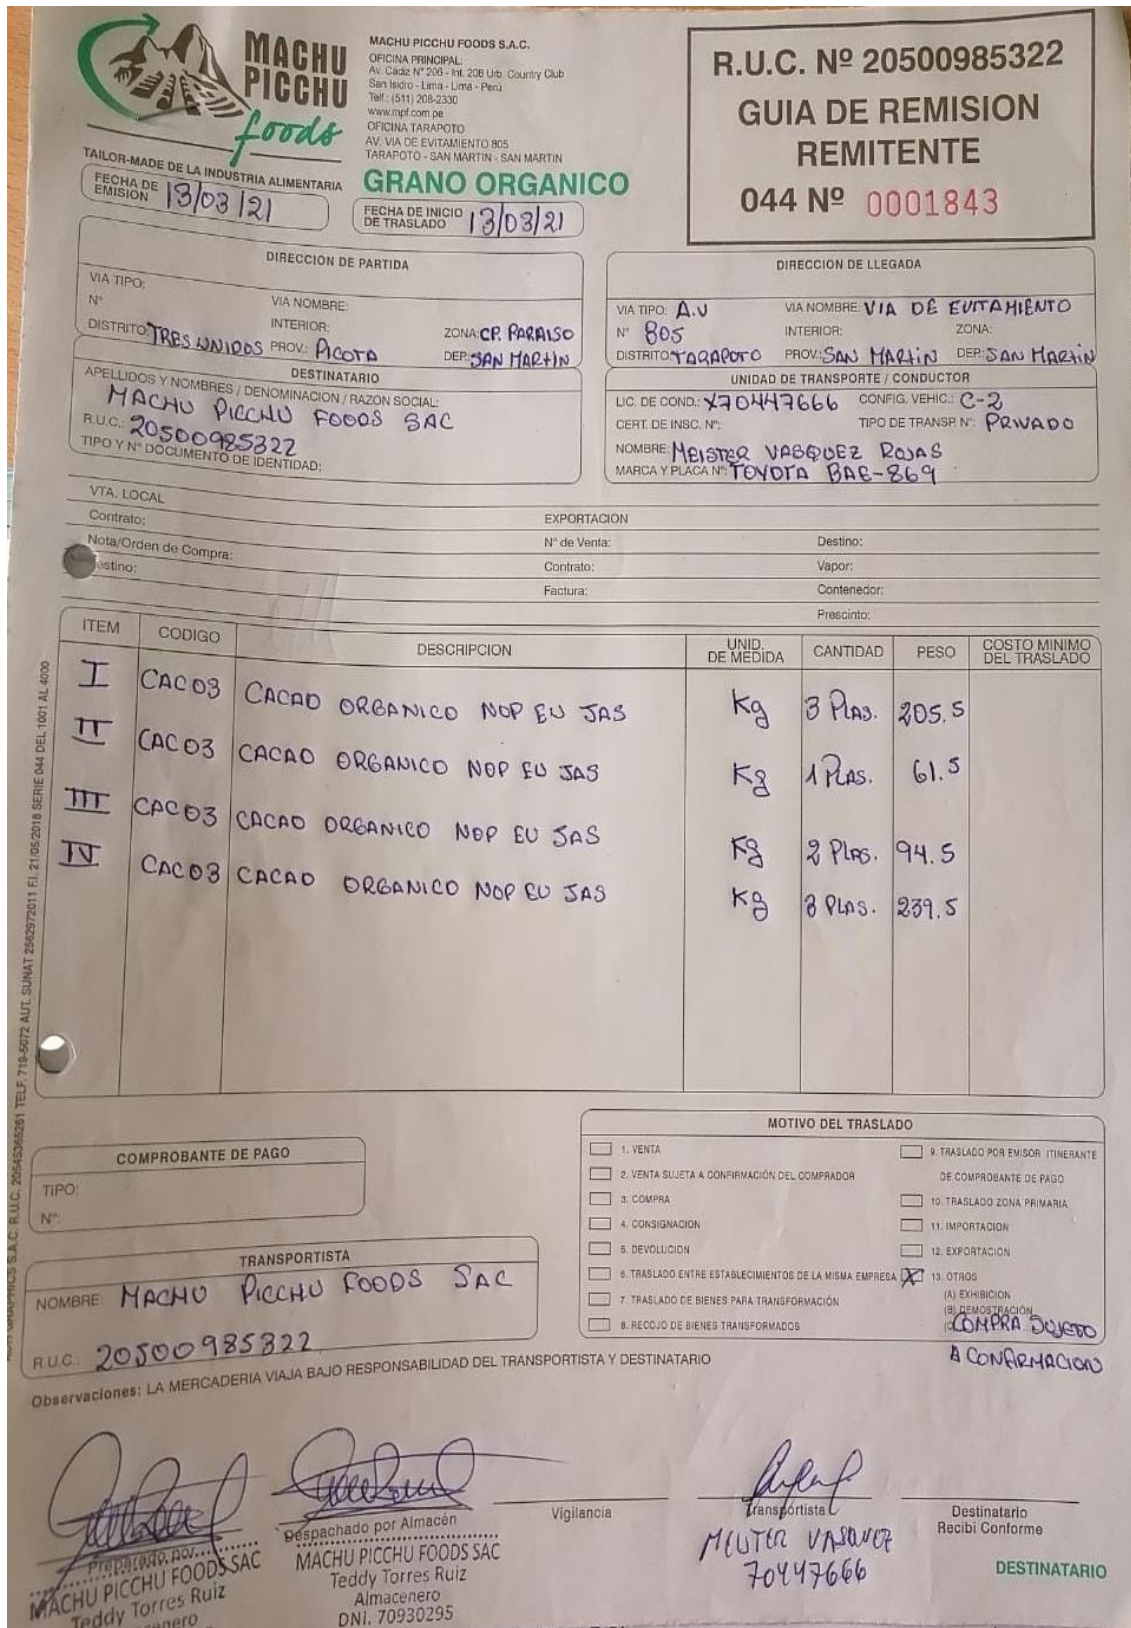 MACHU PICCHU foods
TAILOR-MADE DE LA INDUSTRIA ALIMENTARIA
MACHU PICCHU FOODS S.A.C.
OFICINA PRINCIPAL:
Av. Cádiz N° 206 - Int. 206 Urb. Country Club
San Isidro - Lima - Lima - Perú
Telf.: (511) 208-2330
www.mpf.com.pe
OFICINA TARAPOTO
AV. VIA DE EVITAMIENTO 805
TARAPOTO - SAN MARTIN - SAN MARTIN
GRANO ORGANICO
R.U.C. Nº 20500985322
GUIA DE REMISION
REMITENTE
044 Nº 0001843
FECHA DE EMISION 13/03/21
FECHA DE INICIO DE TRASLADO 13/03/21
DIRECCION DE PARTIDA
VIA TIPO:
N° VIA NOMBRE:
INTERIOR: ZONA: CP. PARAISO
DISTRITO: TRES UNIDOS PROV.: PICOTA DEP.: SAN MARTIN
DIRECCION DE LLEGADA
VIA TIPO: A.V VIA NOMBRE: VIA DE EVITAMIENTO
N° 805 INTERIOR: ZONA:
DISTRITO: TARAPOTO PROV.: SAN MARTIN DEP: SAN MARTIN
DESTINATARIO
APELLIDOS Y NOMBRES / DENOMINACION / RAZON SOCIAL:
MACHU PICCHU FOODS SAC
R.U.C.: 20500985322
TIPO Y N° DOCUMENTO DE IDENTIDAD:
UNIDAD DE TRANSPORTE / CONDUCTOR
LIC. DE COND.: X70447666 CONFIG. VEHIC.: C-2
CERT. DE INSC. N°: TIPO DE TRANSP. N°: PRIVADO
NOMBRE: MEISTER VASQUEZ ROJAS
MARCA Y PLACA N°: TOYOTA BAE-869
VTA. LOCAL
Contrato:
Nota/Orden de Compra:
estino:
EXPORTACION
N° de Venta: Destino:
Contrato: Vapor:
Factura: Contenedor:
Prescinto:
ITEM CODIGO DESCRIPCION UNID. DE MEDIDA CANTIDAD PESO COSTO MINIMO DEL TRASLADO
I CAC03 CACAO ORGANICO NOP EU JAS Kg 3 PLAS. 205.5
II CAC03 CACAO ORGANICO NOP EU JAS Kg 1 PLAS. 61.5
III CAC03 CACAO ORGANICO NOP EU JAS Kg 2 PLAS. 94.5
IV CAC03 CACAO ORGANICO NOP EU JAS Kg 3 PLAS. 239.5
R.U.C. 20545366261 TELF. 719-5072 AUT. SUNAT 2562972011 F.I. 21/05/2018 SERIE 044 DEL 1001 AL 4000
COMPROBANTE DE PAGO
TIPO:
N°:
TRANSPORTISTA
NOMBRE: MACHU PICCHU FOODS SAC
R.U.C.: 20500985322
MOTIVO DEL TRASLADO
1. VENTA
2. VENTA SUJETA A CONFIRMACIÓN DEL COMPRADOR
3. COMPRA
4. CONSIGNACION
5. DEVOLUCION
6. TRASLADO ENTRE ESTABLECIMIENTOS DE LA MISMA EMPRESA
7. TRASLADO DE BIENES PARA TRANSFORMACIÓN
8. RECOJO DE BIENES TRANSFORMADOS
9. TRASLADO POR EMISOR ITINERANTE
DE COMPROBANTE DE PAGO
10. TRASLADO ZONA PRIMARIA
11. IMPORTACION
12. EXPORTACION
X 13. OTROS
(A) EXHIBICION
(B) DEMOSTRACIÓN
COMPRA SUJETO
A CONFIRMACION
Observaciones: LA MERCADERIA VIAJA BAJO RESPONSABILIDAD DEL TRANSPORTISTA Y DESTINATARIO
Preparado por
MACHU PICCHU FOODS SAC
Teddy Torres Ruiz
Despachado por Almacén
MACHU PICCHU FOODS SAC
Teddy Torres Ruiz
Almacenero
DNI. 70930295
Vigilancia
Transportista
VASQUEZ
70447666
Destinatario
Recibi Conforme
DESTINATARIO